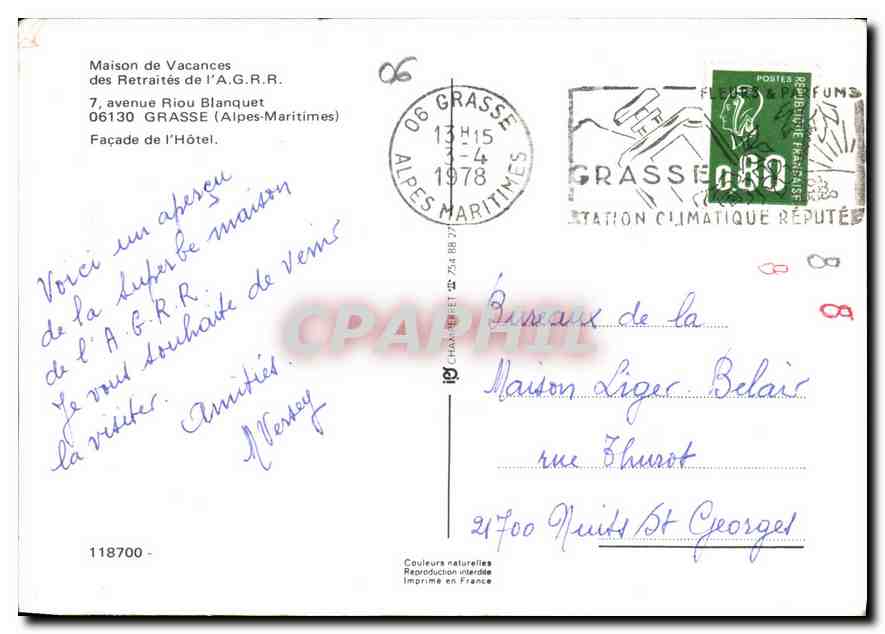 Maison de Vacances
des Retraités de l'A.G.R.R.
7, avenue Riou Blanquet
06130 GRASSE (Alpes-Maritimes)
Façade de l'Hôtel.
06
06 GRASSE
13H15
3-4
1978
ALPES MARITIMES
FLEURS & PARFUMS
GRASSE
STATION CLIMATIQUE RÉPUTÉE
POSTES
RÉPUBLIQUE FRANÇAISE
0,80
Voici un aperçu
de la superbe maison
de l'A.G.R.R.
Je vous souhaite de venir
la visiter.
Amitiés.
Versey
CPAPHIL
CHAMPERRET ☎ 754 88 27
Bureaux de la
Maison Liger-Belair
rue Thurot
21700 Nuits/St Georges
118700 -
Couleurs naturelles
Reproduction interdite
Imprimé en France